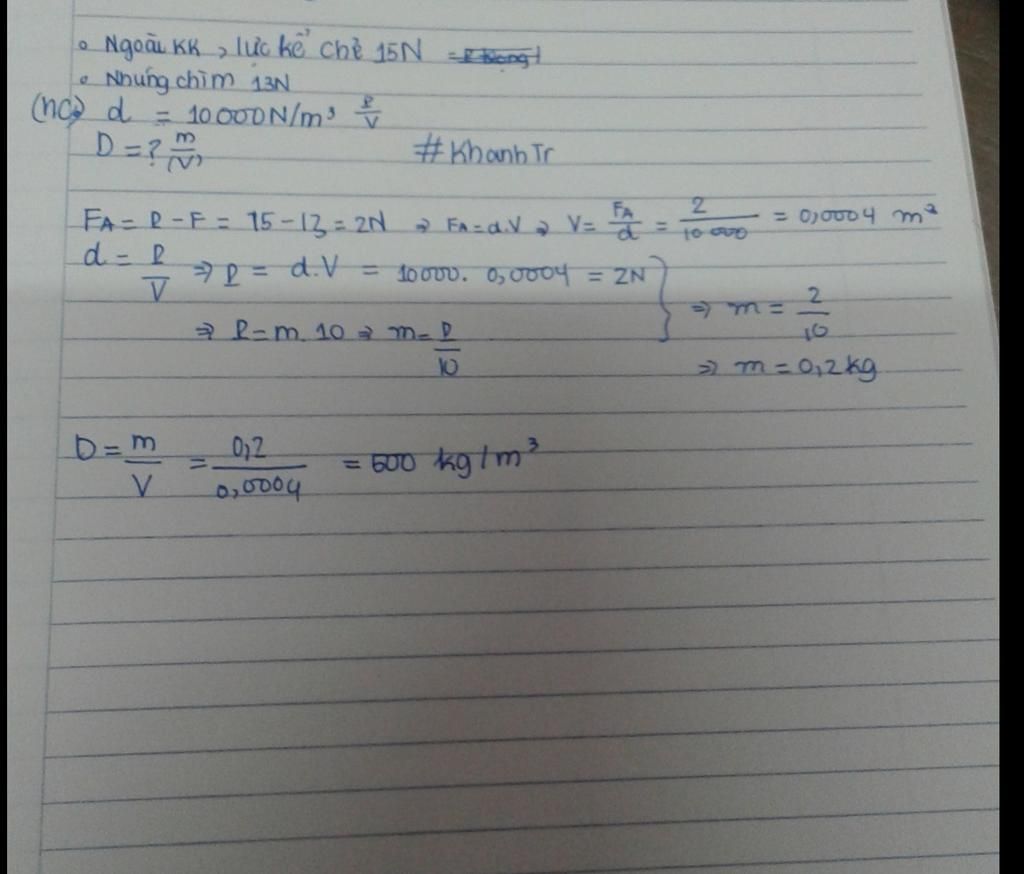 • Ngoài KK, lực kế chỉ 15N
• Nhúng chìm 13N
(nc) d = 10000N/m³ P/V
D = ? m/(V)
#KhanhTr
FA = P - F = 15 - 13 = 2N ⇒ FA = d.V ⇒ V = FA/d = 2/10 000 = 0,0004 m³
d = P/V ⇒ P = d.V = 10000. 0,0004 = 2N
⇒ P = m.10 ⇒ m = P/10
} ⇒ m = 2/10
⇒ m = 0,2kg
D = m/V = 0,2/0,0004 = 500 kg/m³